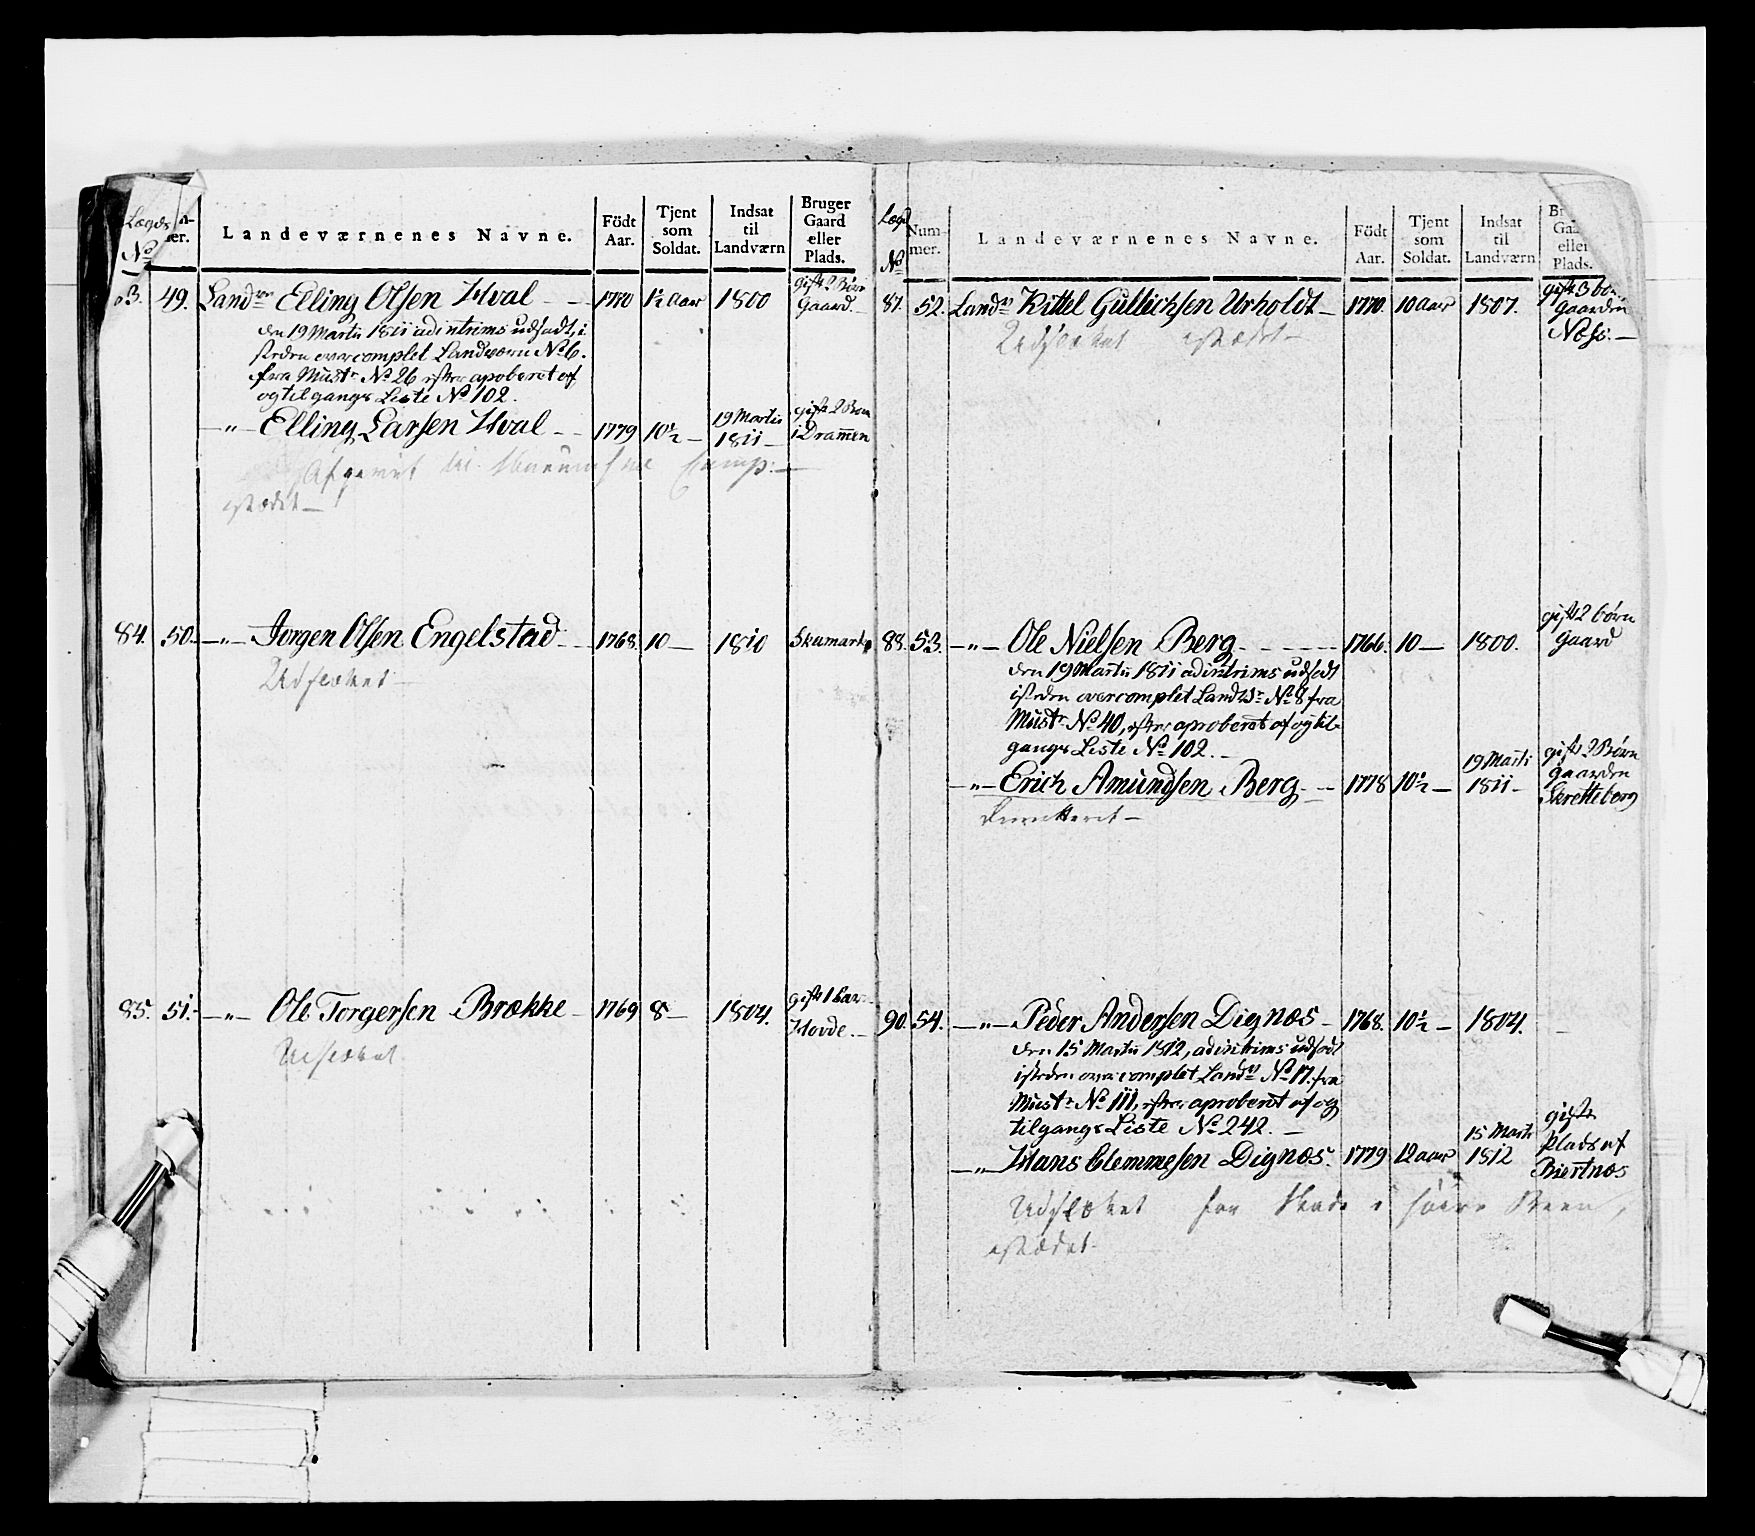 Lægds
No
n-
er.
Landeværnenes Navne.
Födt
Aar.
Tjent
som
Soldat.
Indsat
til
Landværn
Bruger
Gaard
eller
Plads.
83. 49. Landvr Elling Olsen Hval - - 1770 1800 gift 2 Børn
Gaard.
den 19 Martii 1811 adintrims udsadt, i
steden overcomplet Landværn No 6.
fra Mustr No 26 efter aproberet af
og tilgangs Liste No 102.
-"- Elling Larsen Hval - - 1779 10½ - 19 Martii 1811 - gift 2 Børn
i Drammen
Comp: -
84. 50. -"- Jorgen Olsen Engelstad - - 1768. 10 - 1810
Udslettet -
85. 51. -"- Ole Torgersen Brække - 1769 8 - 1804. gift 1 Barn
Hovde. -
Udslettet
Lægd
No
Num-
mer.
Landeværnenes Navne.
Födt
Aar.
Tjent
som
Soldat.
Indsat
til
Landværn
Br
Gaa
eller
Plads.
87. 52. Landvr Kittel Gullichsen Urholdt - 1770. 10 aar 1807. gift 3 børn
Gaarden
Næss. -
Udslettet
88. 53. -"- Ole Nielsen Berg - - - - 1766. 10 - 1800. gift 2 børn
Gaard
den 19 Martii 1811 adintrims udsadt
isteden overcomplet Landvr No 8 fra
Mustr No 40, efter aproberet af og til-
gangs Liste No 102. -
-"- Erich Amundsen Berg - - 1778 10½ - 19 Martii 1811 - gift 2 Børn
Gaarden
Skretteberg
90. 54. -"- Peder Andersen Dignæs - 1768. 10½ - 1804. -
den 15 Martii 1812, adintrims udsadt
isteden overcomplet Landvr No 17. fra
Mustr No 111, efter aproberet af og
tilgangs Liste No 242. -
-"- Hans Clemmesen Dignæs. 1779 12 aar 15 Martii 1812 gift
Plads af
Udslettet for Skade i høire Been,